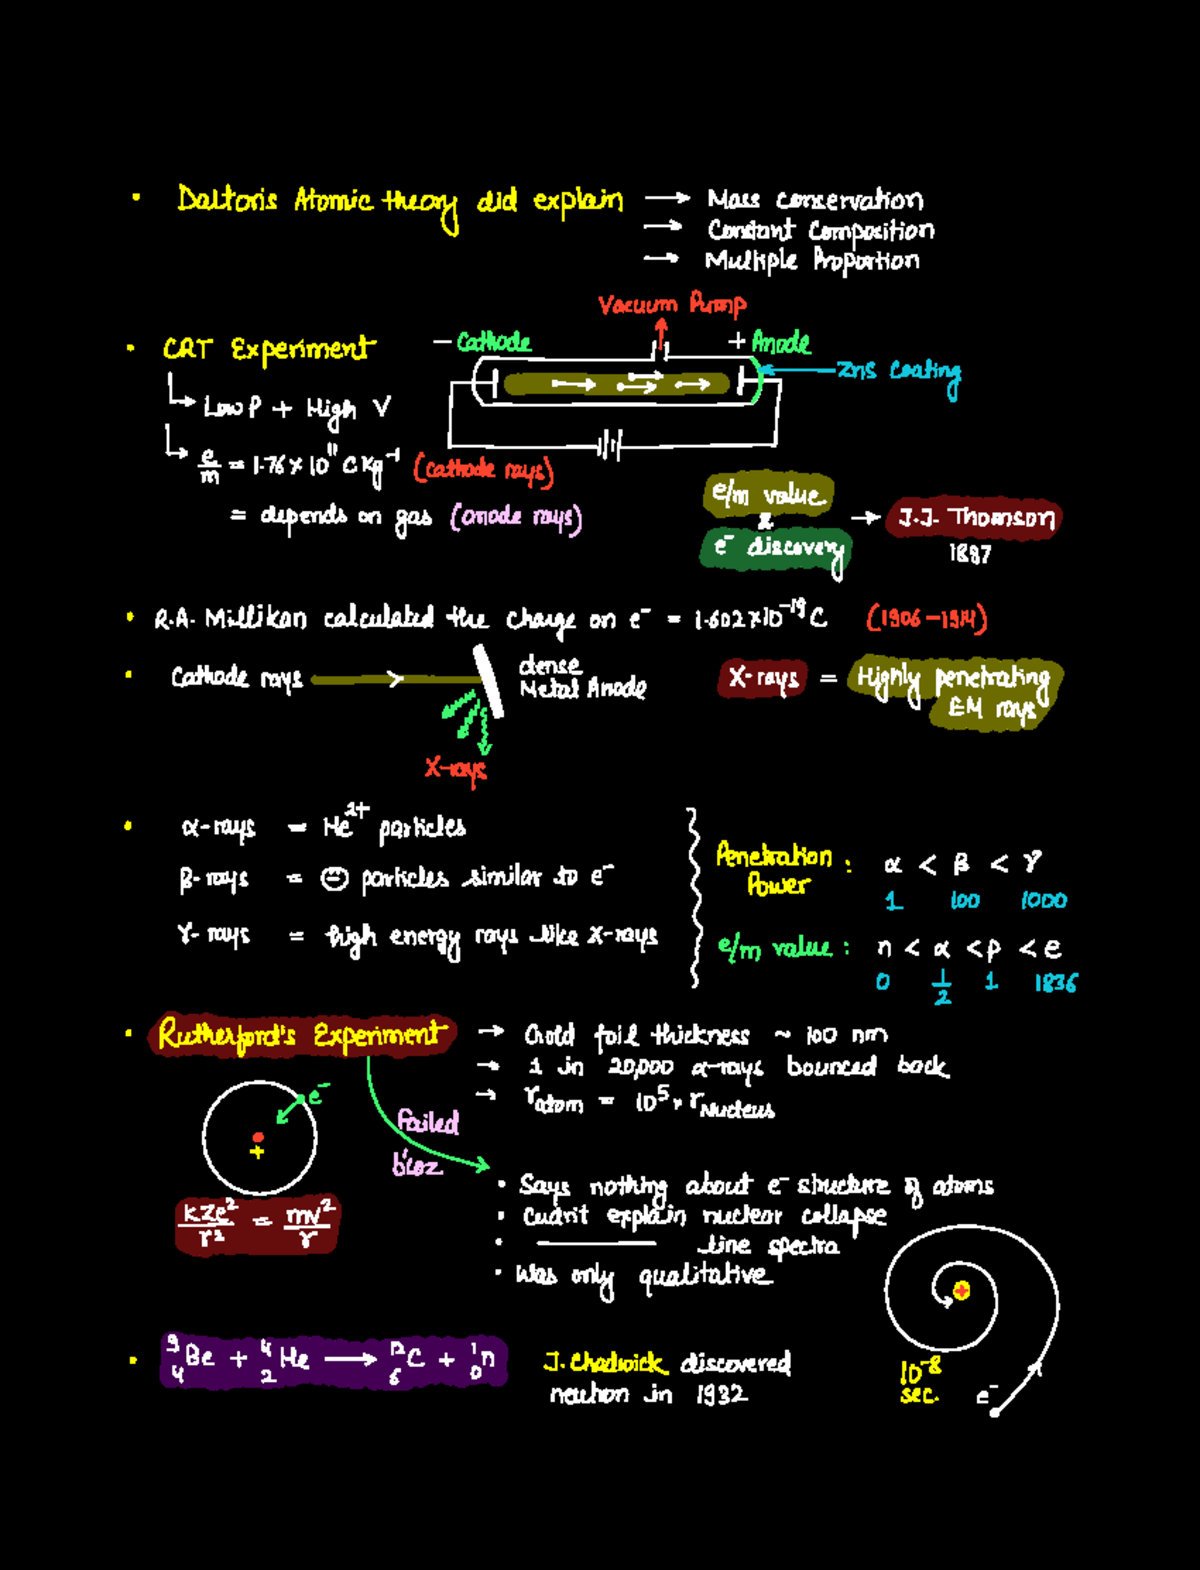 • Dalton's Atomic theory did explain → Mass conservation
→ Constant Composition
→ Multiple Proportion
Vacuum Pump
• CRT Experiment
− Cathode
+ Anode
ZnS Coating
Low P + High V
e/m = 1.76 × 10¹¹ C Kg⁻¹ (cathode rays)
= depends on gas (anode rays)
e/m value
&
e⁻ discovery
→ J.J. Thomson
1897
• R.A. Millikan calculated the charge on e⁻ = 1.602×10⁻¹⁹ C (1906–1914)
• Cathode rays
dense
Metal Anode
X-rays
X-rays = Highly penetrating
EM rays
• α-rays = He²⁺ particles
β-rays = ⊖ particles similar to e⁻
γ-rays = high energy rays like X-rays
Penetration
Power : α < β < γ
1 100 1000
e/m value : n < α < p < e
0 1/2 1 1836
• Rutherford's Experiment → Gold foil thickness ~ 100 nm
→ 1 in 20,000 α-rays bounced back
→ r atom = 10⁵ × r Nucleus
e⁻
+
kZe²/r² = mv²/r
Failed
b'coz
• Says nothing about e⁻ structure of atoms
• Cudn't explain nuclear collapse
• ——— line spectra
• Was only qualitative
+
10⁻⁸
sec.
e⁻
• ⁹₄Be + ⁴₂He → ¹²₆C + ¹₀n
J. Chadwick discovered
neutron in 1932